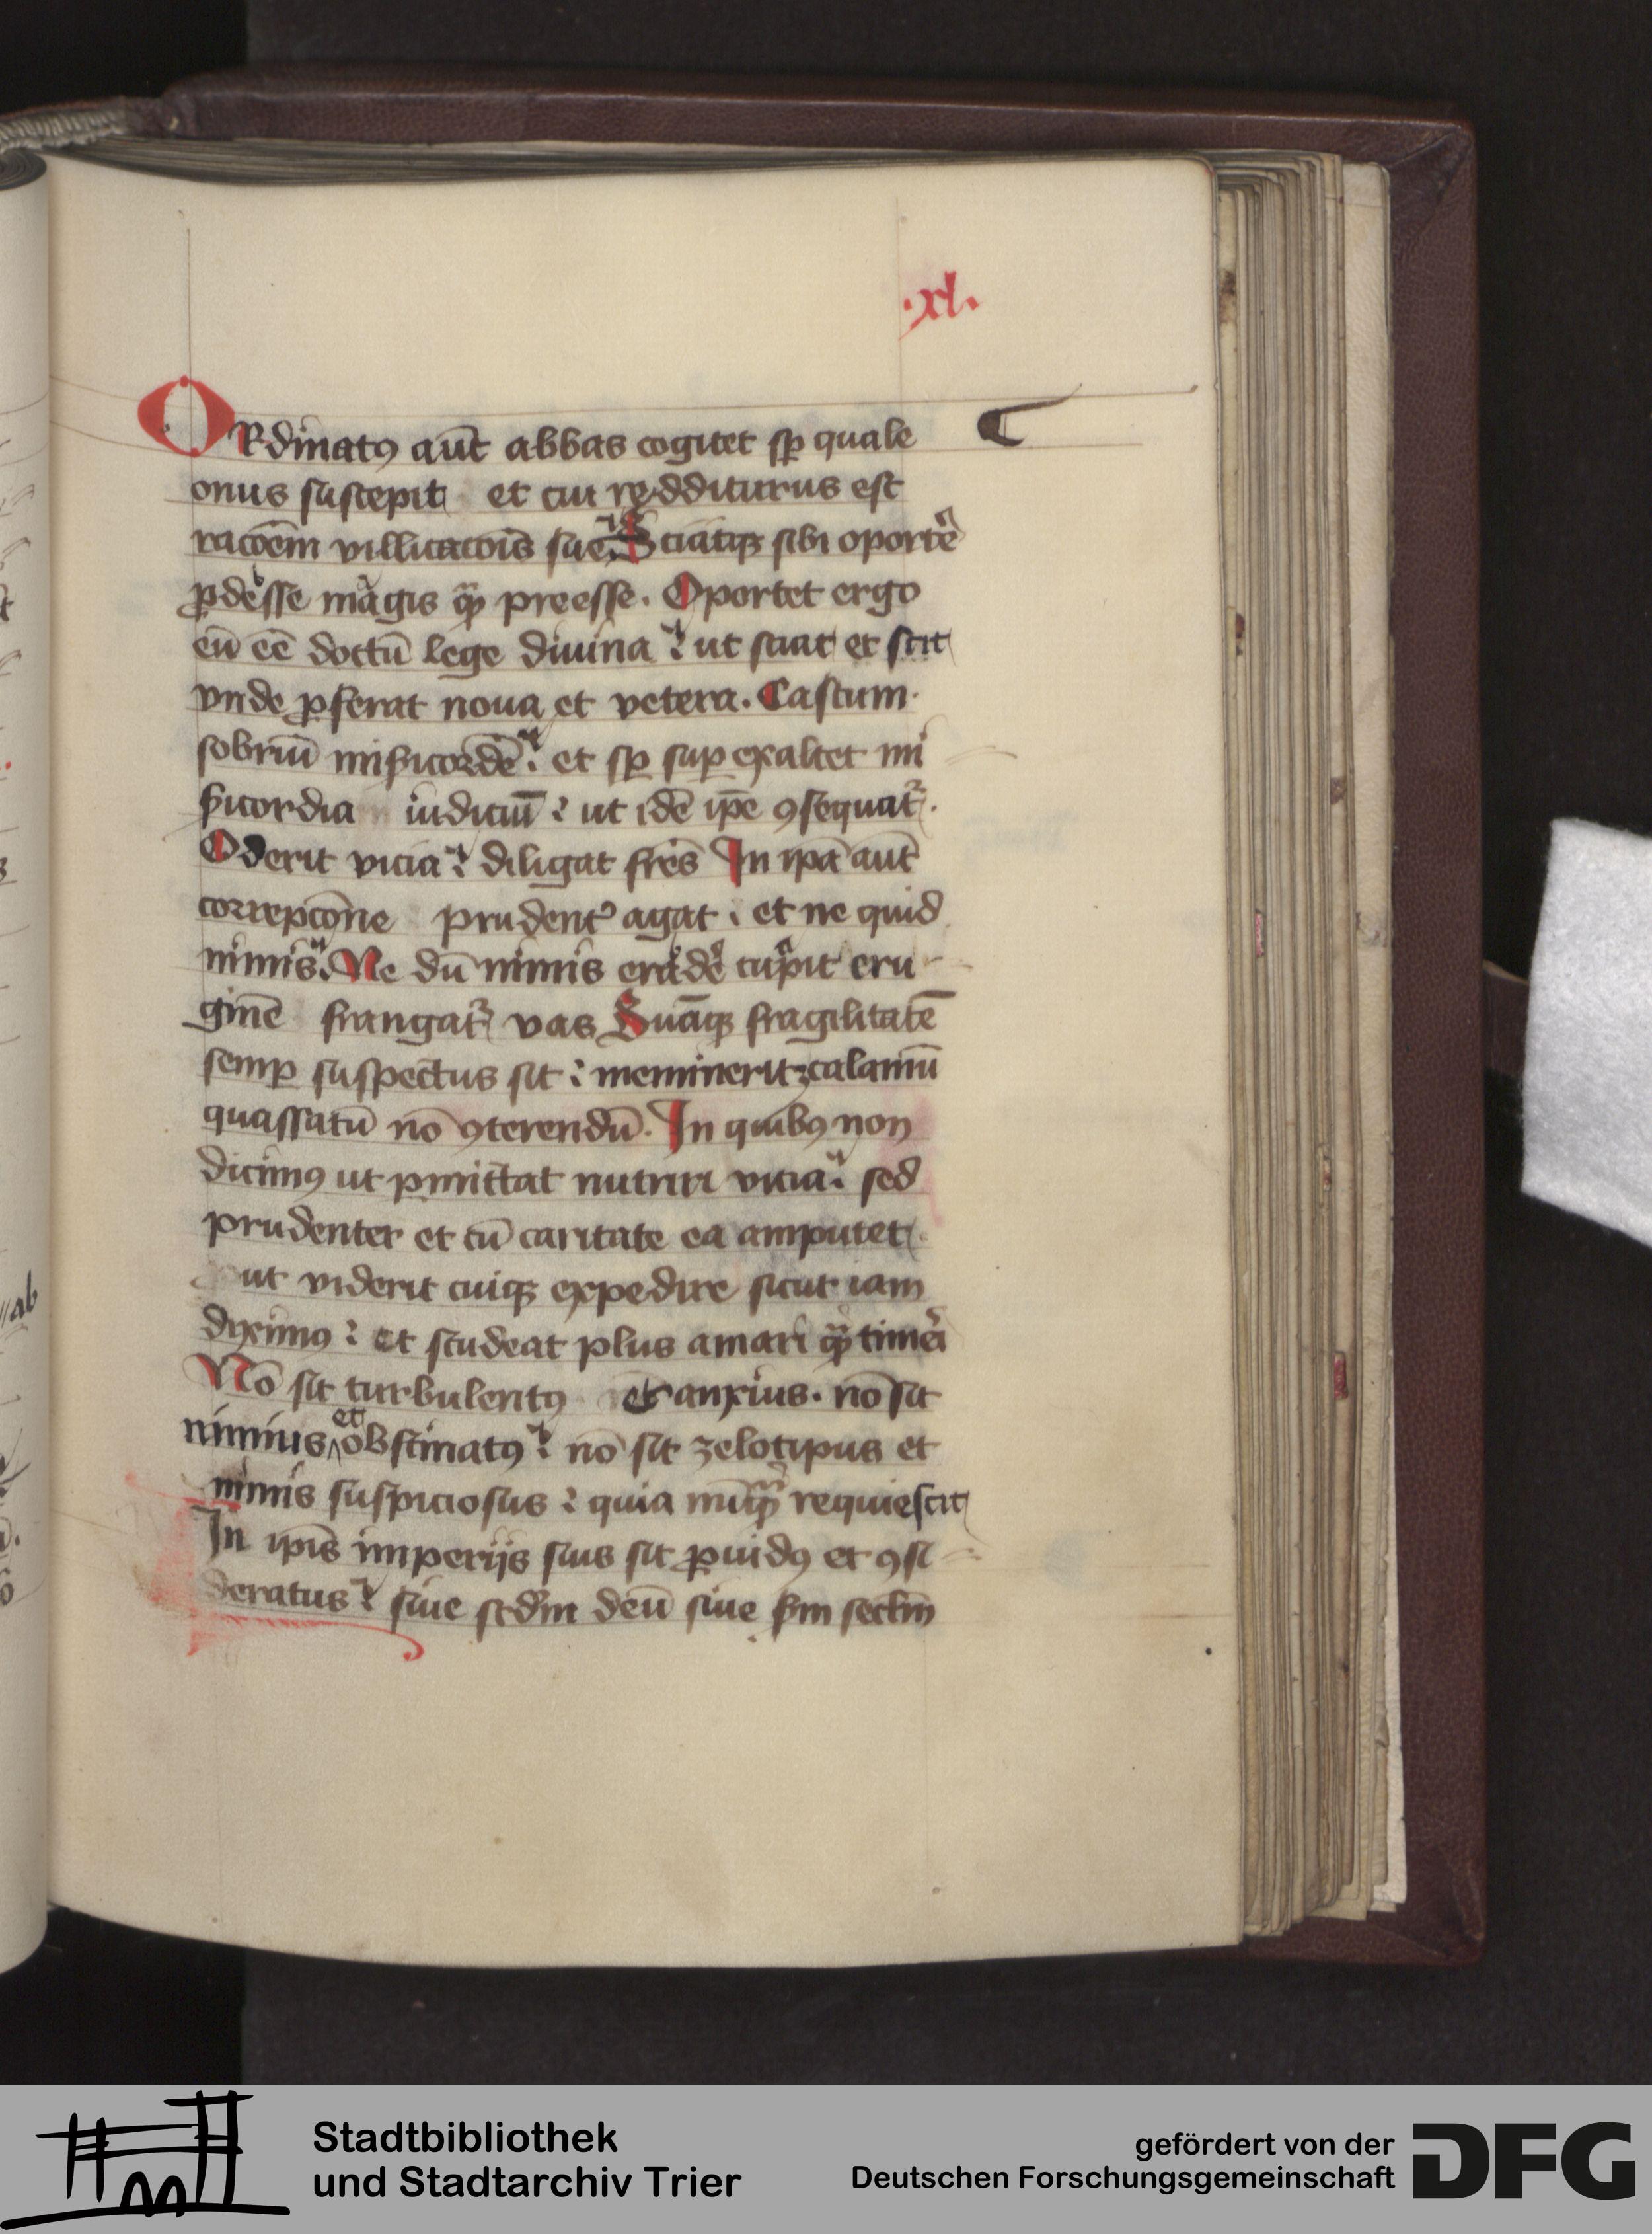 .xl.
ORdinatꝰ aut̄ abbas cogitet sp̄ quale
onus suscepit et cui redditurus est
racōem villicacōis sue. Sciatqꝫ sibi oportē
ꝓdesse magis qꝫ̄ preesse. Oportet ergo
eū eē doctū lege diuina : ut sciat et scit
vnde ꝓferat noua et vetera. Castum.
sobriū mīsicordē : et sp̄ suꝑ exaltet mi
sicordia iudiciū : ut idē ip̄e ꝯsequat᷑.
Oderit vicia : diligat fr̄es In ipā aut̄
correpcōne prudent᷑ agat . et ne quid
nimis. Ne dū nimis eradē cupit eru
ginē frangat᷑ vas Suāqꝫ fragilitatē
semꝑ suspectus sit : meminerit calamū
quassatū nō ꝯterendū. In quibꝰ non
dicimꝰ ut ꝑmittat nutriri vicia : sed
prudenter et cū caritate ea amputet
ut viderit cuiqꝫ expedire sicut iam
diximꝰ : et studeat plus amari qꝫ̄ timēi
Nō sit turbulentꝰ et anxius. nō sit
nimius et obstinatꝰ : nō sit zelotipus et
nimis suspiciosus : quia nūqꝫ̄ requiescit
In ipīs imperijs suis sit ꝓuidꝰ et ꝯsi
deratus : siue scd̄m deū siue sm̄ seclm̄
Stadtbibliothek
und Stadtarchiv Trier
gefördert von der
Deutschen Forschungsgemeinschaft
DFG